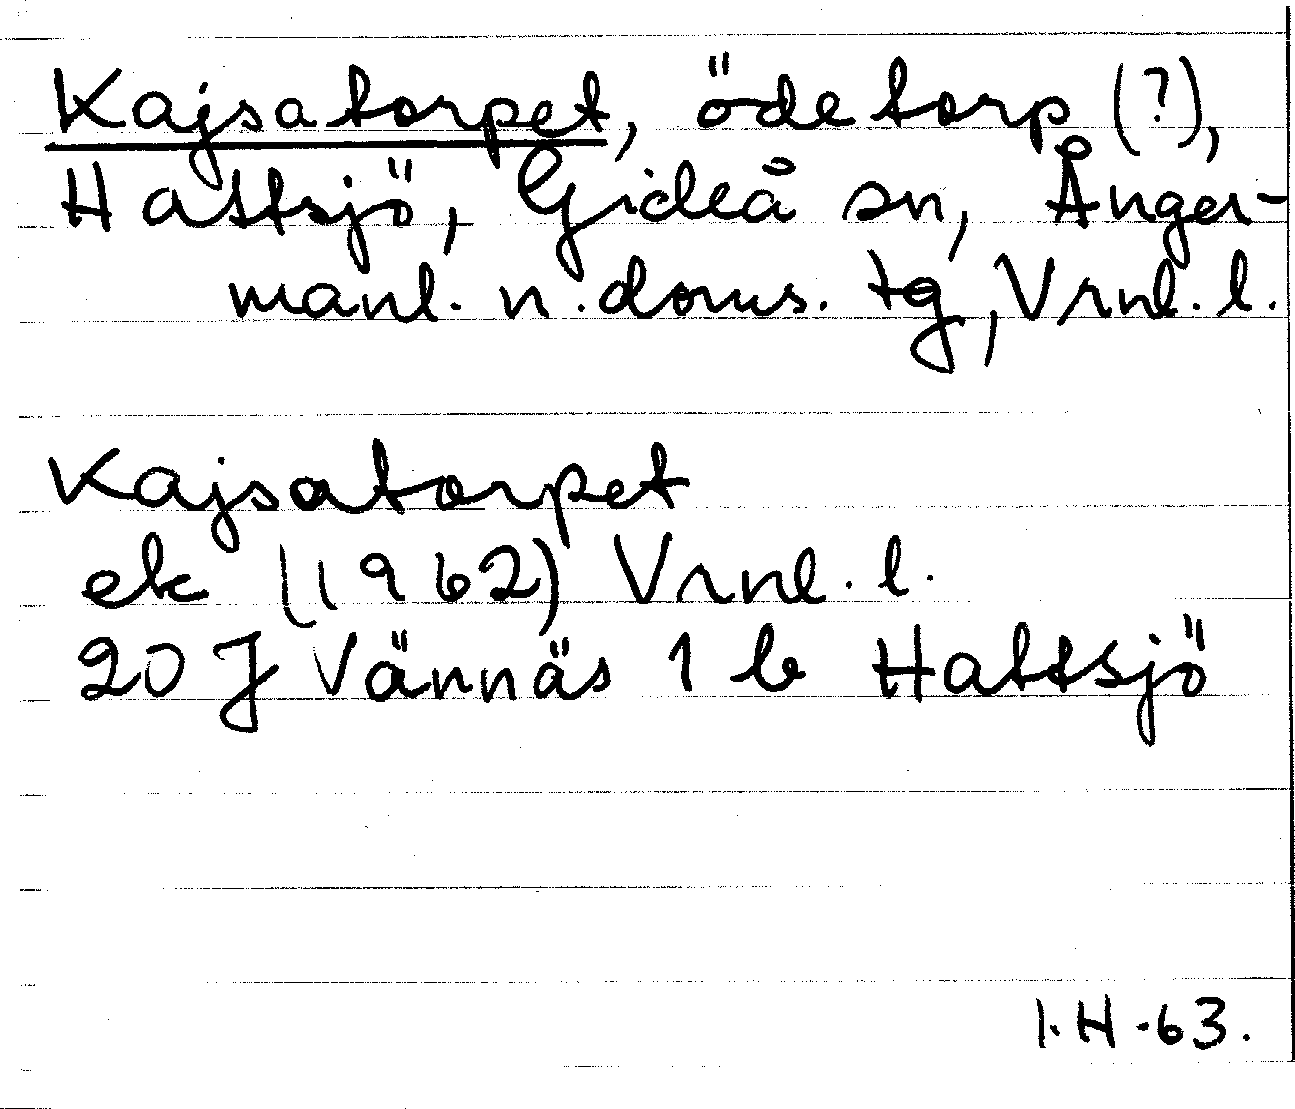 Kajsatorpet, ödetorp (?),
Hattsjö, Gideå sn, Ånger-
manl. n. doms. tg, Vrnl. l.
Kajsatorpet
ek (1962) Vrnl. l.
20 J Vännäs 1 b Hattsjö
I. H -63.